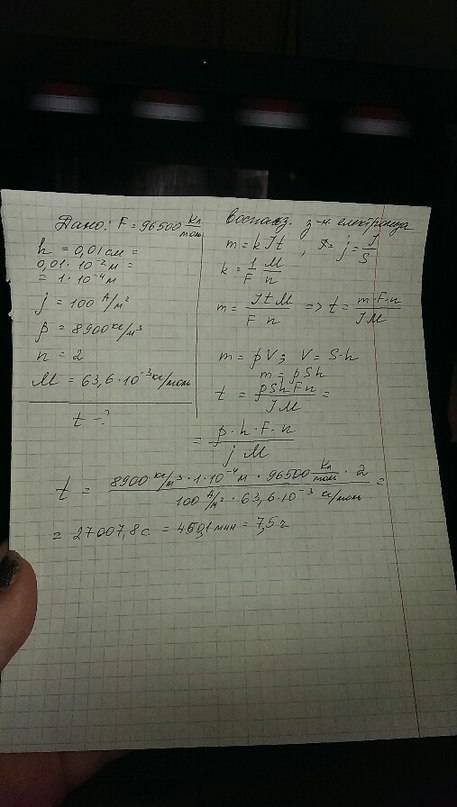 Дано: F = 96500 Кл/моль
h = 0,01 см =
0,01·10⁻² м =
= 1·10⁻⁴ м
j = 100 А/м²
ρ = 8900 кг/м³
n = 2
M = 63,6·10⁻³ кг/моль
t – ?
з-н
m = kIt , j = I/S
k = 1/F M/n
m = ItM/F n => t = m·F·n/IM
m = ρV; V = S·h
m = ρSh
t = ρShFn/IM =
= ρ·h·F·n/j M
t = 8900 кг/м³·1·10⁻⁴ м·96500 Кл/моль·2/100 А/м²·63,6·10⁻³ кг/моль =
= 27007,8 с = 450,1 мин = 7,5 ч